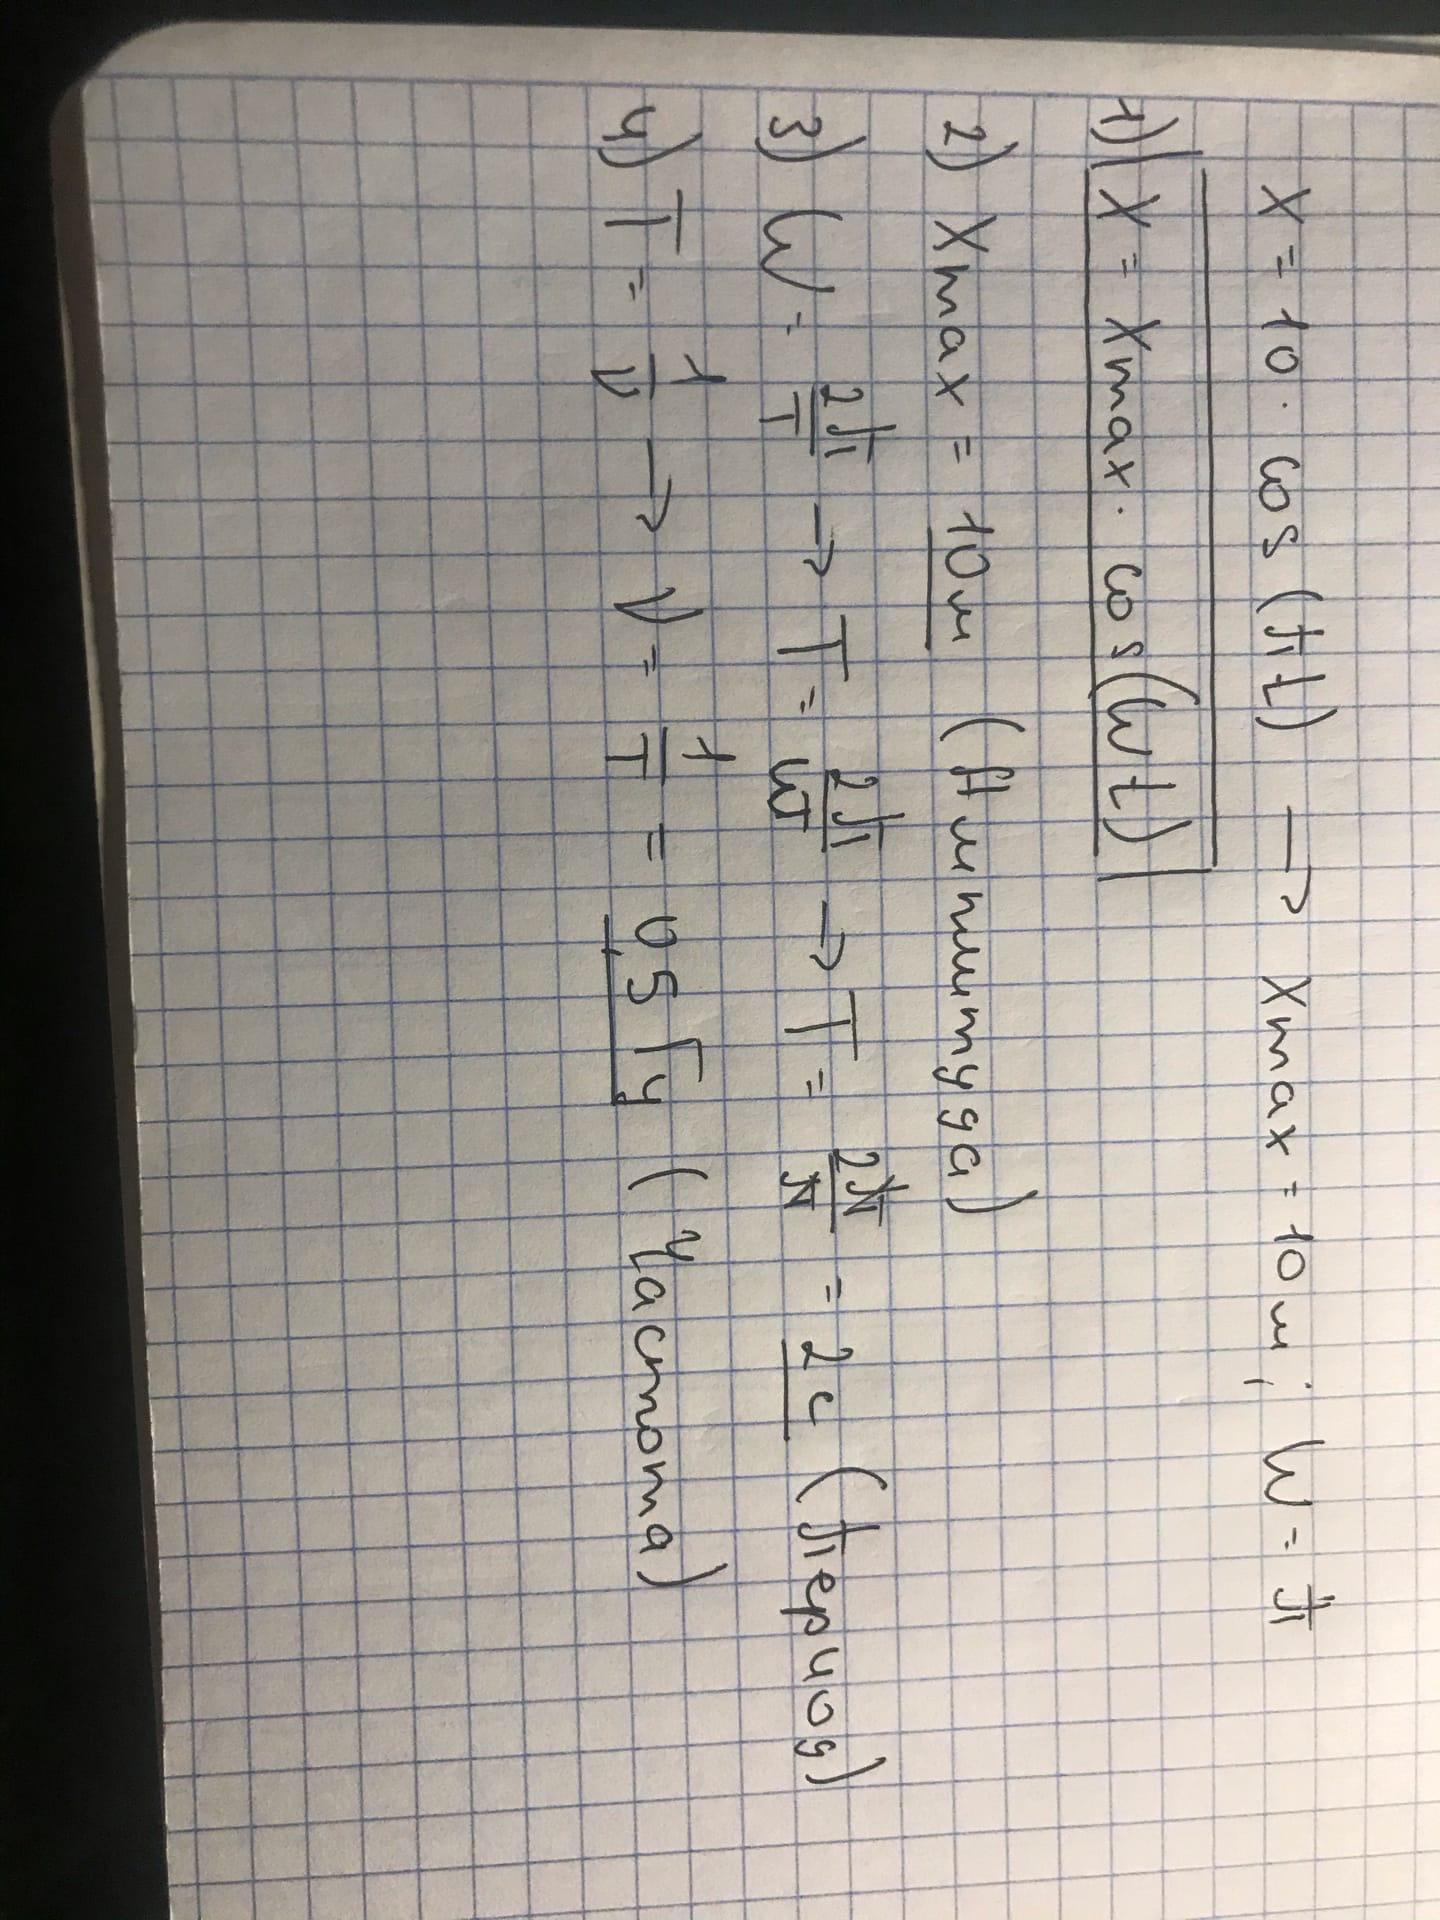 x = 10 · cos (πt) → Xmax = 10м; ω = π
1) X = Xmax · cos(ωt)
2) Xmax = 10м (Амплитуда)
3) ω = 2π/T → T = 2π/ω → T = 2π/π = 2с (Период)
4) T = 1/ν → ν = 1/T = 0,5 Гц (Частота)